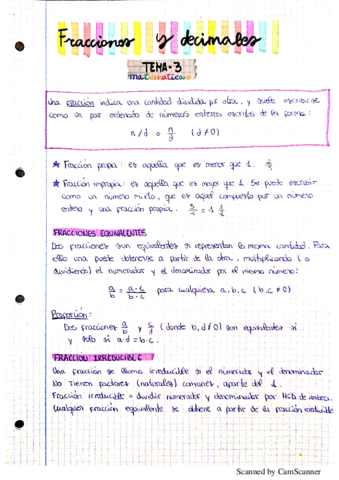 Fracciones y decimales
TEMA-3
matemáticas
Una fracción indica una cantidad dividida por otra, y puede escribirse
como un par ordenado de números enteros escritos de la forma:
n/d o n/d (d≠0)
★ Fracción propia: es aquella que es menor que 1.
★ Fracción impropia: es aquella que es mayor que 1. Se puede escribir
como un número mixto, que es aquel compuesto por un número
entero y una fracción propia. = 1
FRACCIONES EQUIVALENTES
Dos fracciones son equivalentes si representan la misma cantidad. Para
ello una puede obtenerse a partir de la otra, multiplicando (o
dividiendo) el numerador y el denominador por el mismo número:
a/b = a·c/b·c para cualquiera a, b, c (b, c ≠ 0)
Proporción:
Dos fracciones a/b y c/d (donde b, d ≠ 0) son equivalentes si
y solo si a·d = b·c.
FRACCIÓN IRREDUCIBLE
Una fracción se llama irreducible si el numerador y el denominador
No tienen factores (naturales) comunes, aparte del 1.
Fracción irreducible = dividir numerador y denominador por MCD de ambos.
Cualquier fracción equivalente se obtiene a partir de la fracción irreducible
Scanned by CamScanner